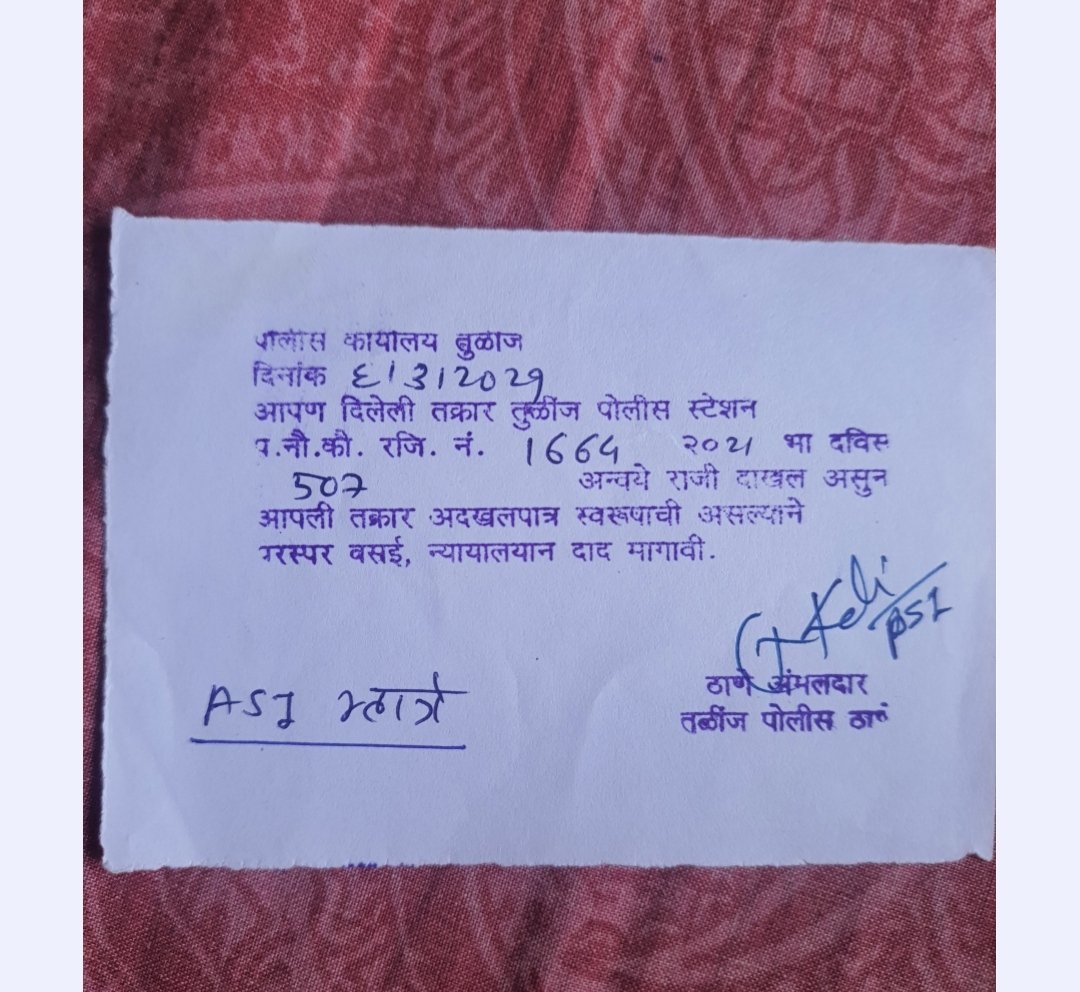 पोलीस कार्यालय तुळींज
दिनांक ६/३/2029
आपण दिलेली तक्रार तुळींज पोलीस स्टेशन
प.नौ.कौ. रजि. नं. 1664 २०21 भा दविस
507 अन्वये राजी दाखल असुन
आपली तक्रार अदखलपात्र स्वरूपाची असल्याने
परस्पर वसई, न्यायालयान दाद मागावी.
ASI
ठाणे अंमलदार
तळींज पोलीस ठाणे
ASI म्हात्रे